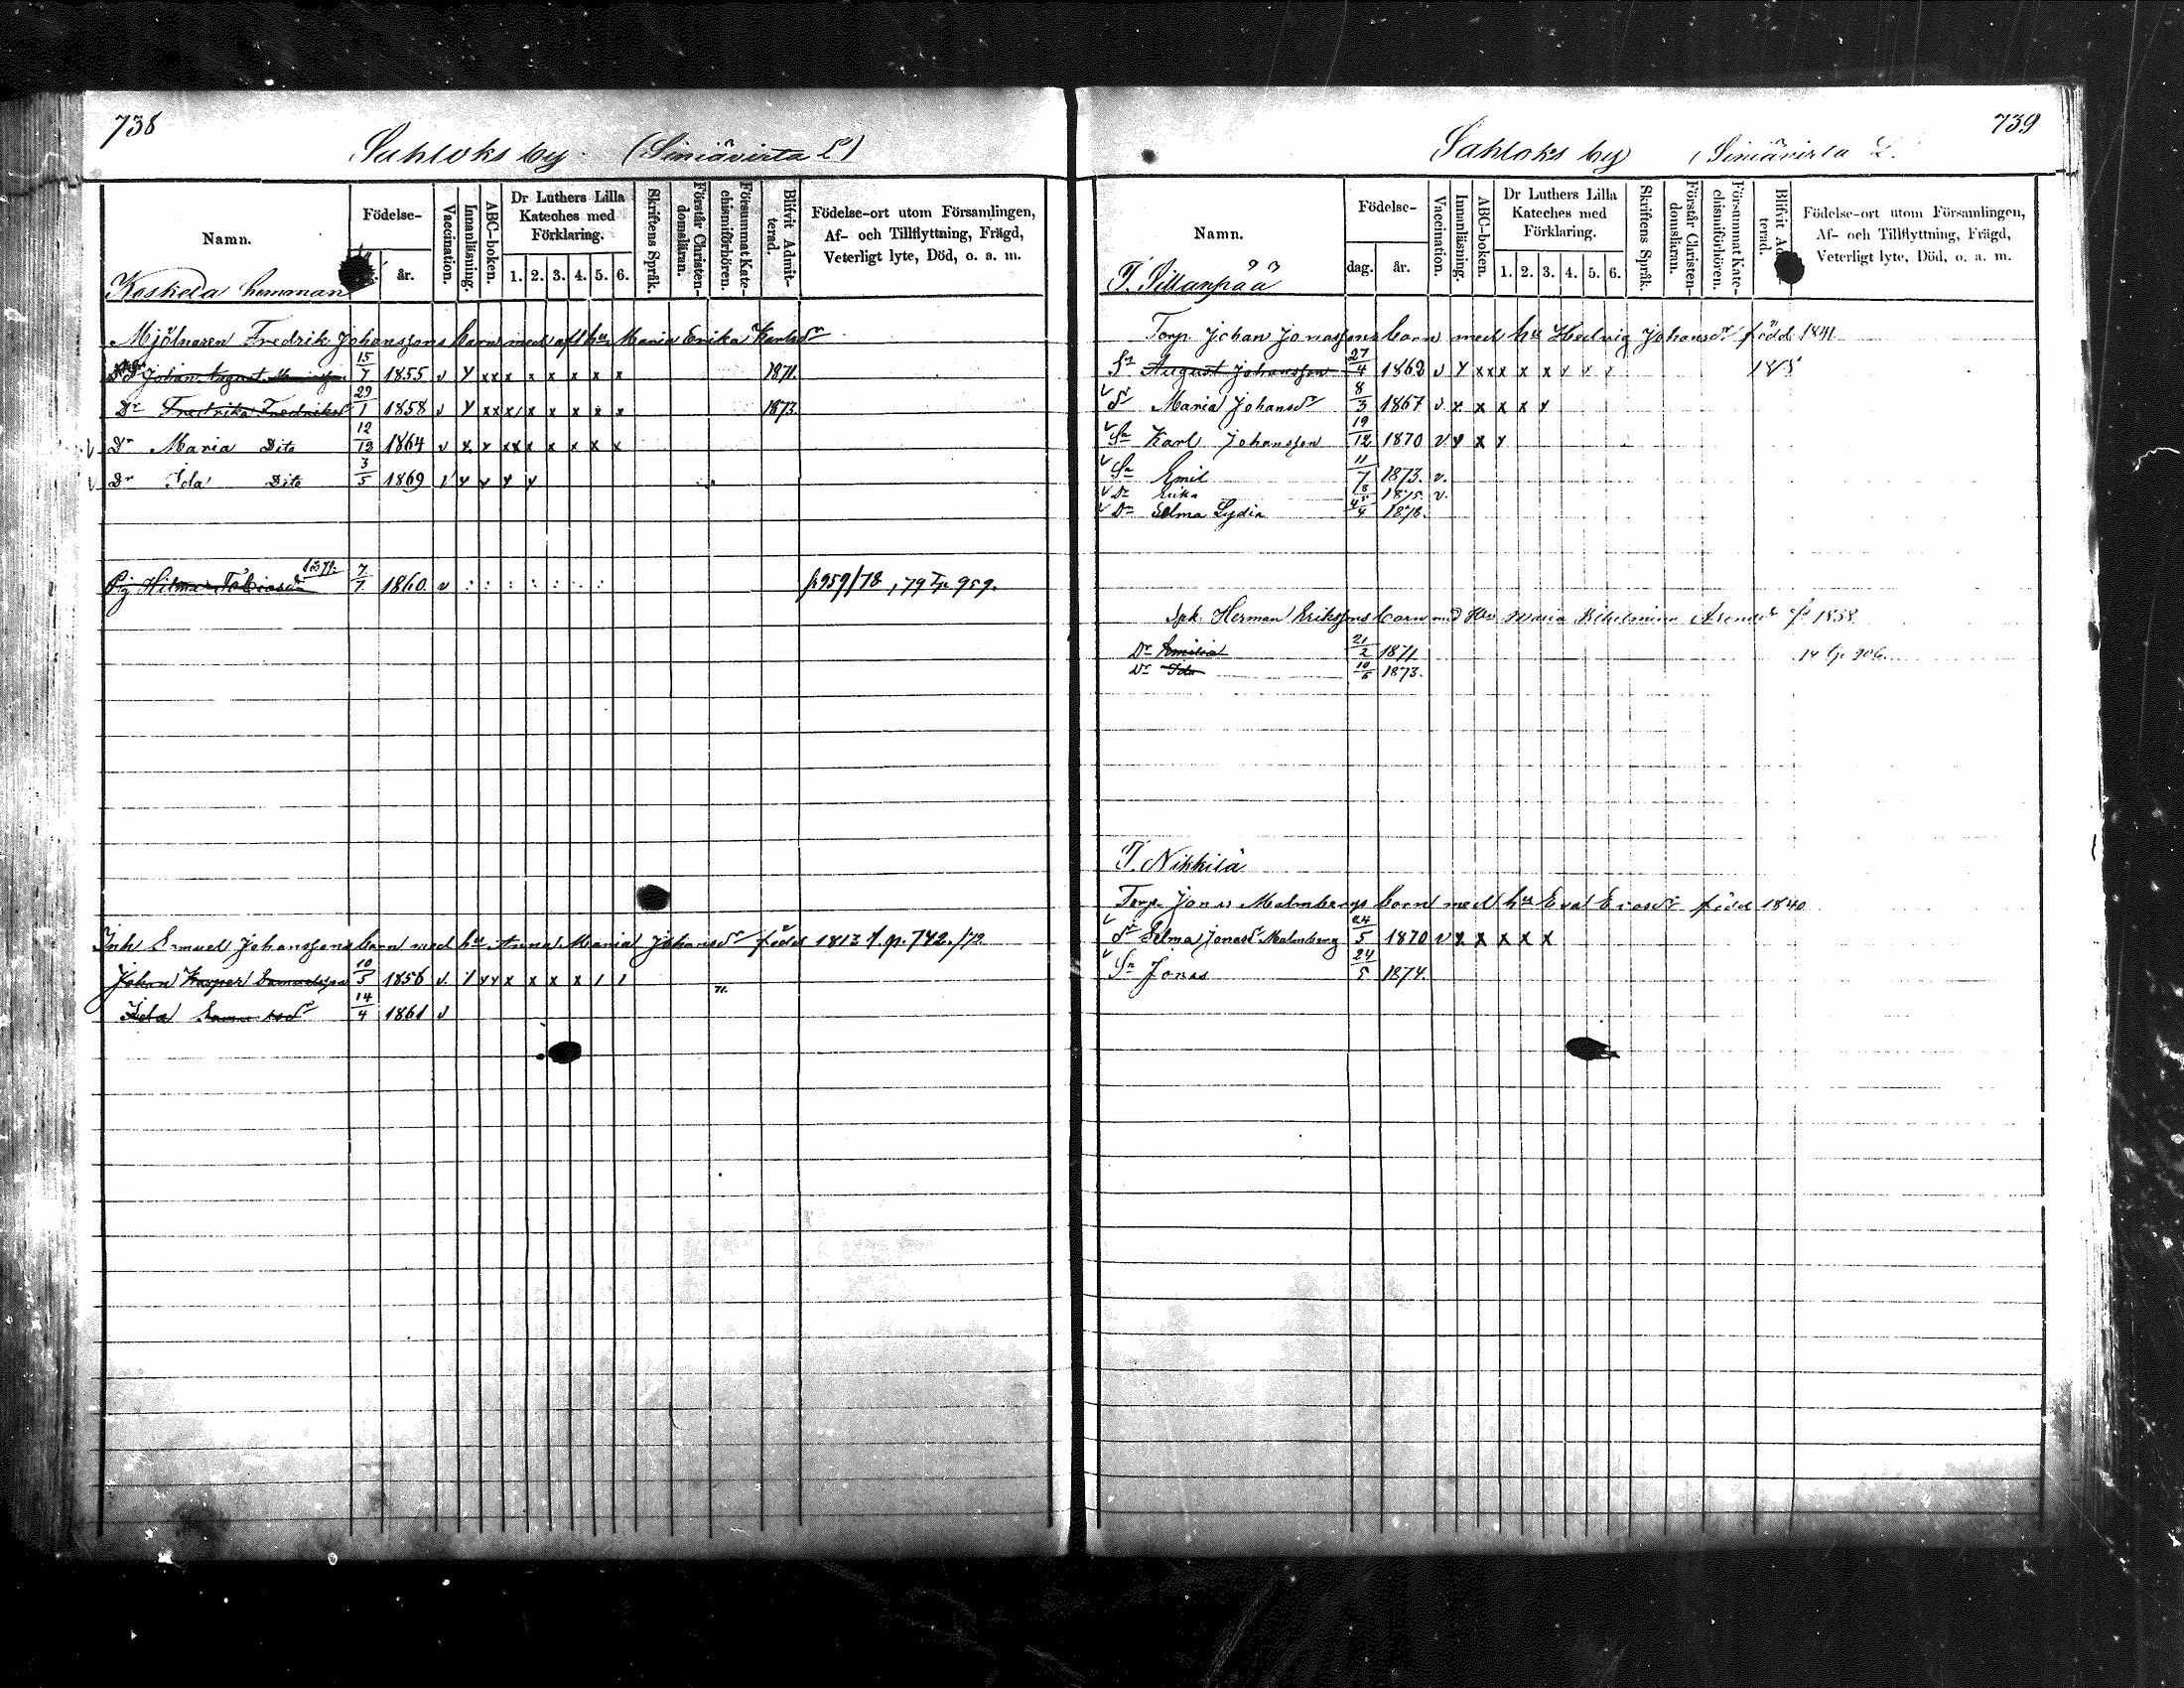 738
Sahloks by (Siniävirta L:)
Namn.
Födelse-
år.
Vaccination.
Innanläsning.
ABC-boken.
Dr Luthers Lilla Kateches med Förklaring.
1. 2. 3. 4. 5. 6.
Skriftens Språk.
Förstår Christendomsläran.
Försummat Katechismiförhören.
Blifvit Admitterad.
Födelse-ort utom Församlingen, Af- och Tillflyttning, Frägd, Veterligt lyte, Död, o. a. m.
Koskela hemman
Mjölnaren Fredrik Johanssons barn med afl. hu Maria Erika Karlsdr
Johan August 15/7 1855 v y x x x x x x x x 1871.
Dr Fredrika Fredriksdr 29/1 1858 v y x x x x x x x x 1873
v Dr Maria Dito 12/12 1864 v x y x x x x x x x
v Dr Ida Dito 3/5 1869 v y y y y
Pig. Hilma Tobiasdr 1879. 7/7 1860. v : : : : : : : p 959/78, 79 T.p. 959.
Inh. Samuel Johanssons barn med hu Anna Maria Johansdr född 1813 T. p. 742./72
Johan Kasper Samuelsson 10/5 1856 v. / y y x x x x / /
Ida 14/4 1861 v
739
Sahloks by (Siniävirta L.
Namn.
Födelse-
dag. år.
Vaccination.
Innanläsning.
ABC-boken.
Dr Luthers Lilla Kateches med Förklaring.
1. 2. 3. 4. 5. 6.
Skriftens Språk.
Förstår Christendomsläran.
Försummat Katechismiförhören.
Blifvit Ad terad.
Födelse-ort utom Församlingen, Af- och Tillflyttning, Frägd, Veterligt lyte, Död, o. a. m.
T. Sillanpää
Torp. Johan Jonassons barn med hu Hedvig Johansdr född 1841
Sn August Johansson 27/4 1862 v y x x x x x y y y
v dr Maria Johansdr 8/3 1867 v. x x x x y
v Sn Karl Johansson 19/12 1870 v y x y
v Sn Emil 11/7 1873. v.
v Dr Erika 1875. v.
v Dr Selma Lydia 1878.
Spk. Herman Erikssons barn Maria Wilhelmina 1858
Dr Emilia 21/2 1871
Dr Ida 10/5 1873.
T. Nikkilä
Torp. Jonas Malmbergs barn med hu Eva född 1840
v dr Selma Jonasdr Malmberg 24/5 1870 v x x x x x
v Sn Jonas 24/5 1874.